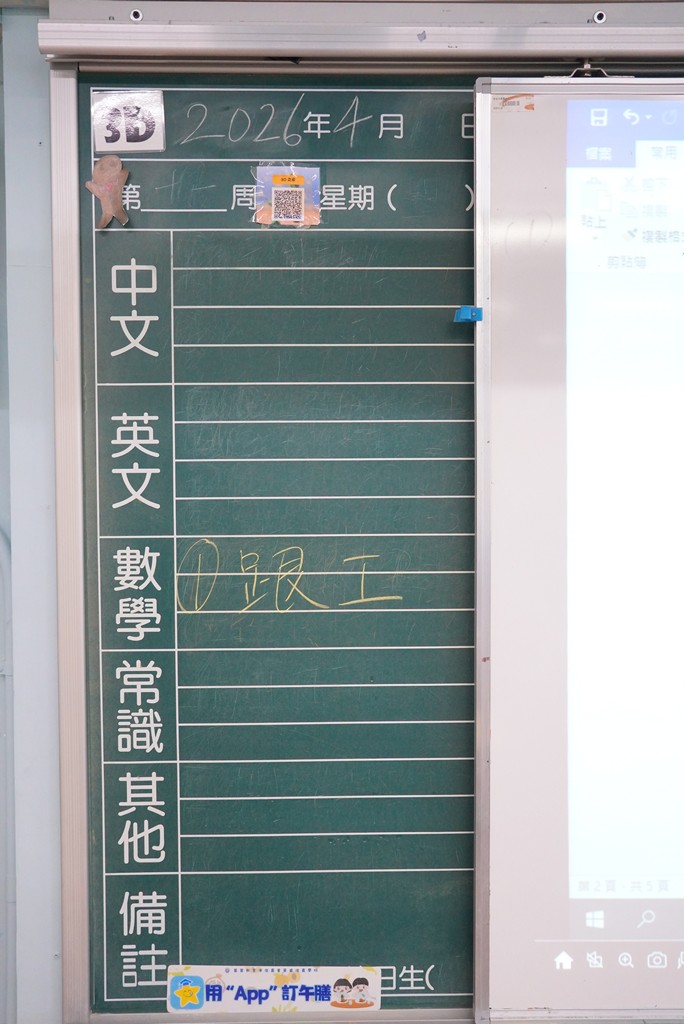 3D 2026年4月 日
第 周 星期( )
中文
英文
數學 ① 跟工
常識
其他
備註
日生(
用“App”訂午膳
檔案 常用
貼上
複製
剪貼簿
第 2 頁，共 5 頁